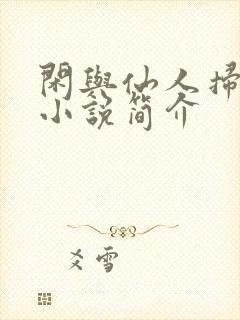 閑與仙人掃
小說簡介
爻雪